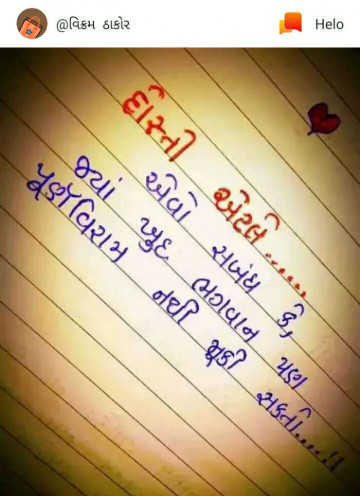 @વિક્રમ ઠાકોર
Helo
દોસ્તી એટલે......
એવો સબંધ કે,
જયાં ખુદ ભગવાન પણ
પૂર્ણવિરામ નથી મૂકી સકતો....!!